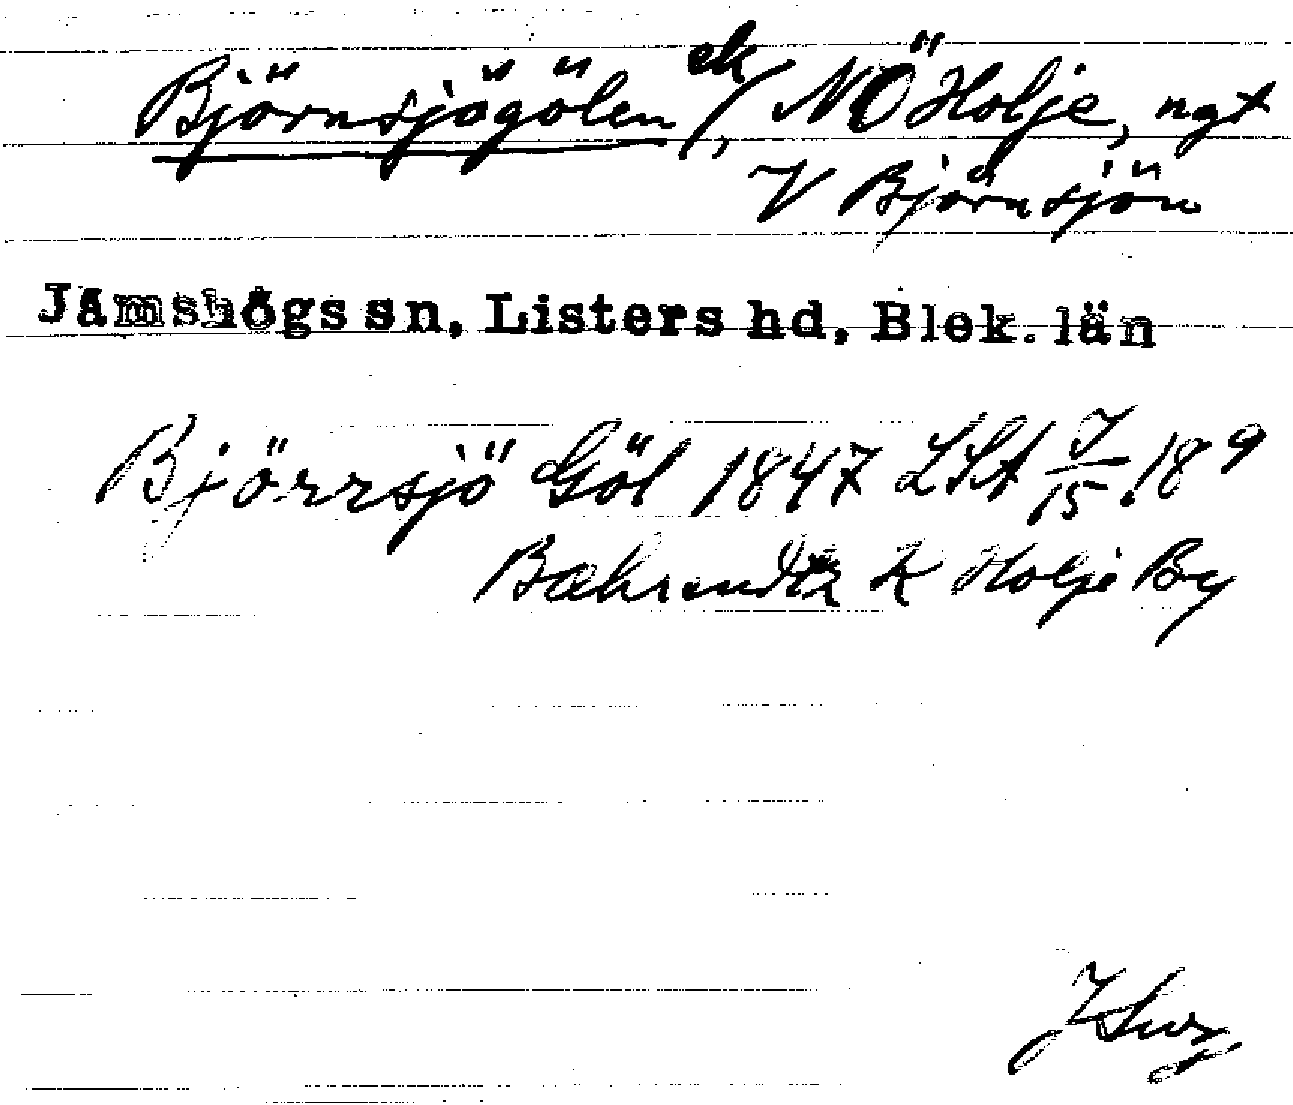 Björnsjögölen ek/, NÖ Holje, ngt
V Björnsjön
Jämshögs sn, Listers hd, Blek. län
Björrsjö Göl 1847 LSA J/15 :18 9
Bæhrendtz K Holje By